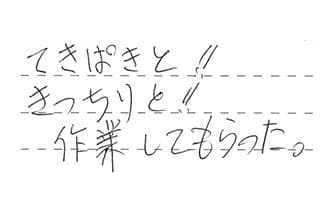 てきぱきと!!
きっちりと!!
作業してもらった。